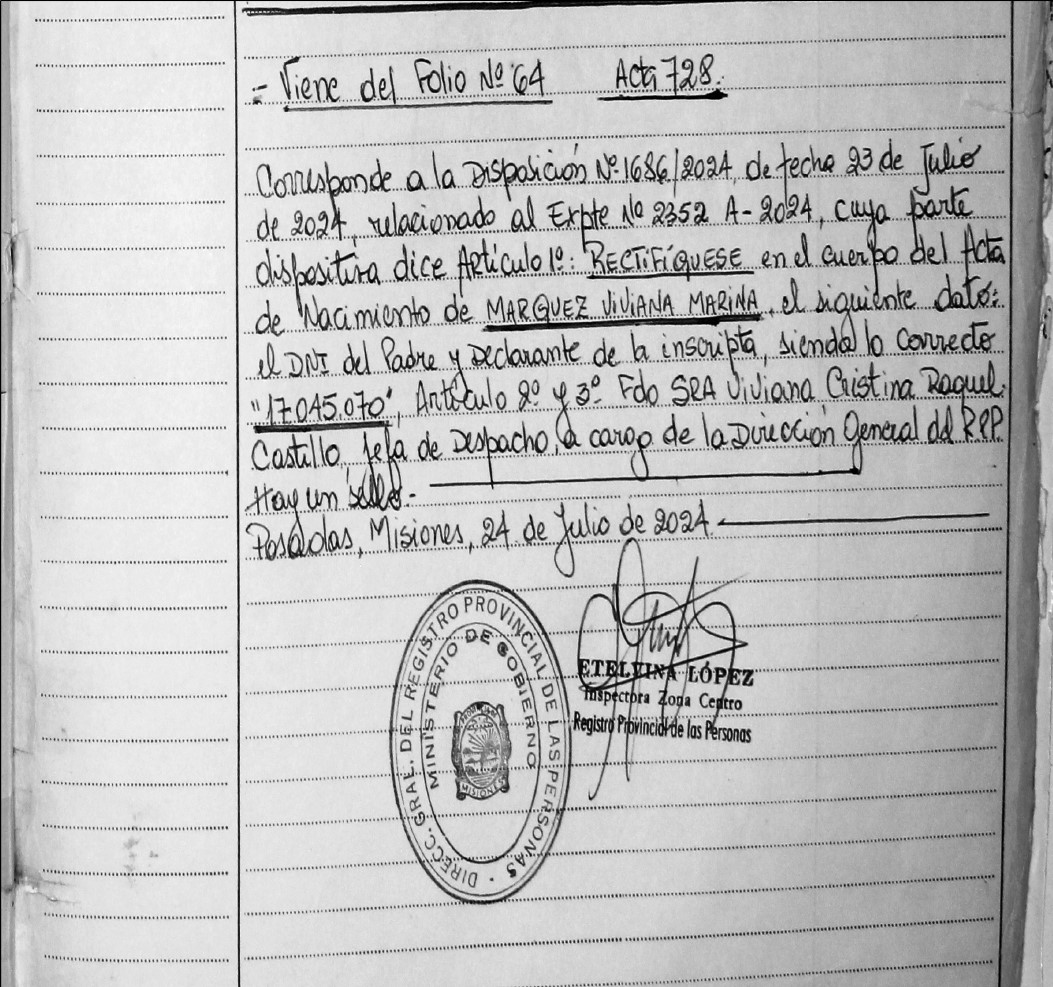 - Viene del Folio Nº 64 Acta 728.
Corresponde a la Disposición Nº 1686/2024, de fecha 23 de Julio
de 2024, relacionado al Expte Nº 2352 A-2024, cuya parte
dispositiva dice Artículo 1º: RECTIFÍQUESE en el cuerpo del Acta
de Nacimiento de MARQUEZ VIVIANA MARINA, el siguiente dato:
el DNI del Padre y Declarante de la inscripta, siendo lo correcto
"17.045.070", Artículo 2º y 3º Fdo SRA Viviana Cristina Raquel
Castillo, Jefa de Despacho, a cargo de la Dirección General del RPP.
Hay un sello.-
Posadas, Misiones, 24 de Julio de 2024.
DIRECC. GRAL. DEL REGISTRO PROVINCIAL DE LAS PERSONAS
MINISTERIO DE GOBIERNO
MISIONES
ETELVINA LÓPEZ
Inspectora Zona Centro
Registro Provincial de las Personas